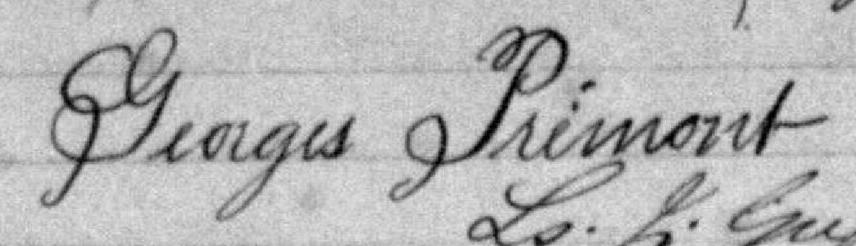 Georges Prémont
Ls. J.